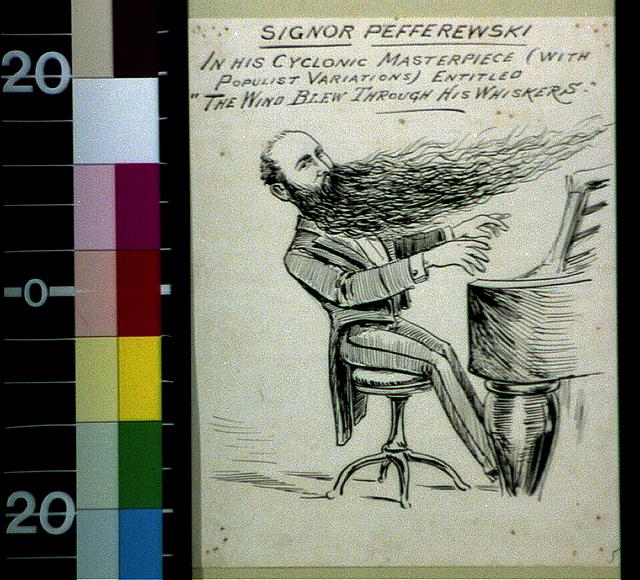 SIGNOR PEFFEREWSKI
IN HIS CYCLONIC MASTERPIECE (WITH
POPULIST VARIATIONS) ENTITLED
"THE WIND BLEW THROUGH HIS WHISKERS."
20
0
20
5